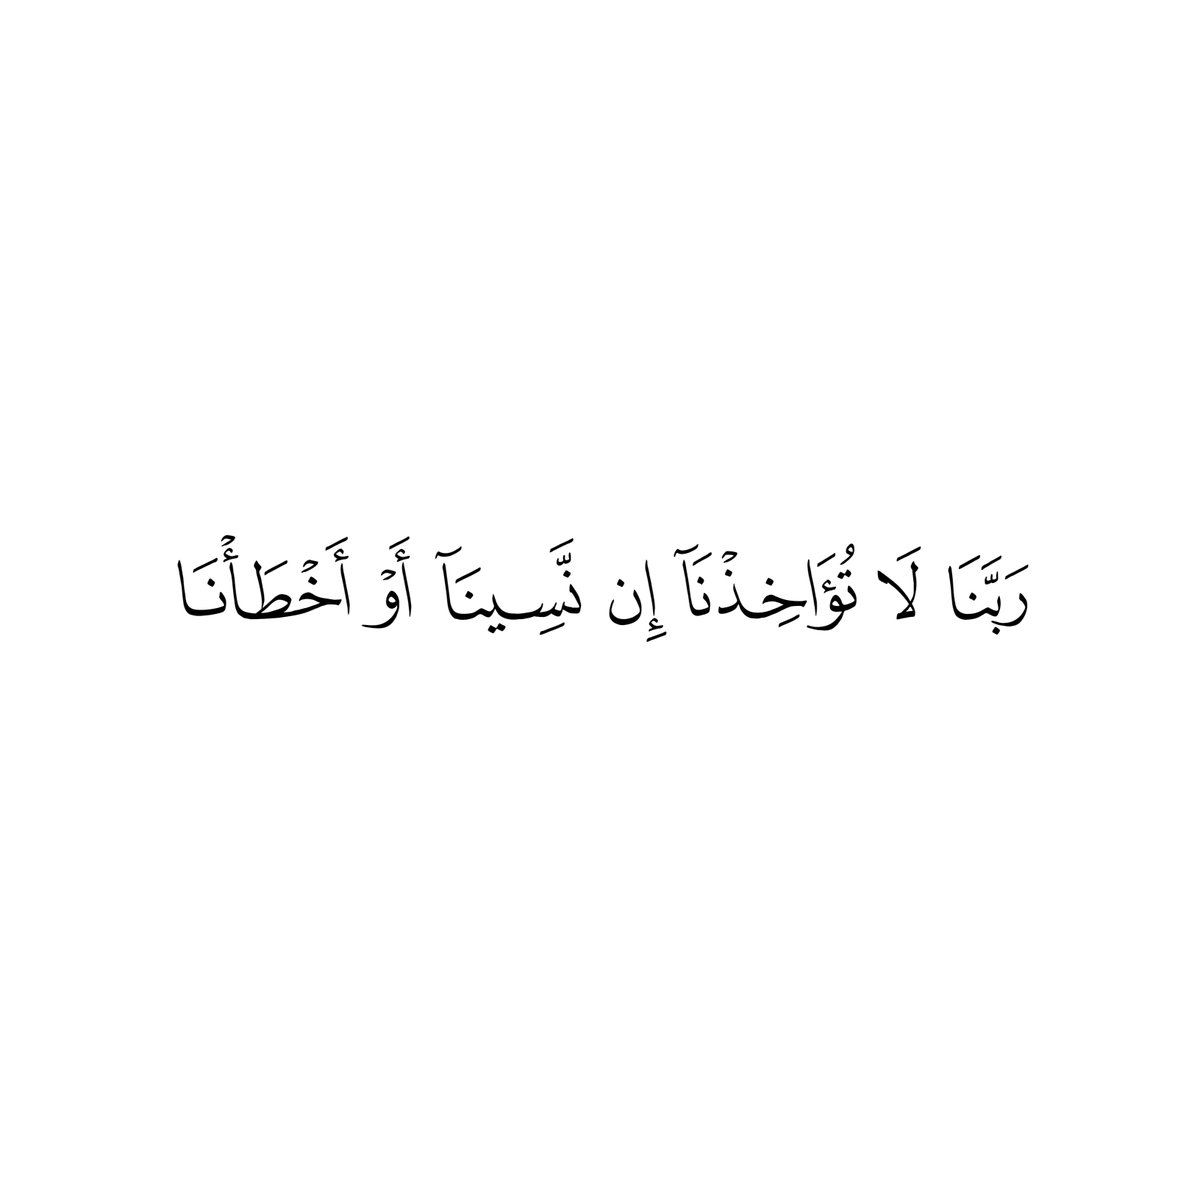 رَبَّنَا لَا تُؤَاخِذْنَآ إِن نَّسِينَآ أَوْ أَخْطَأْنَا